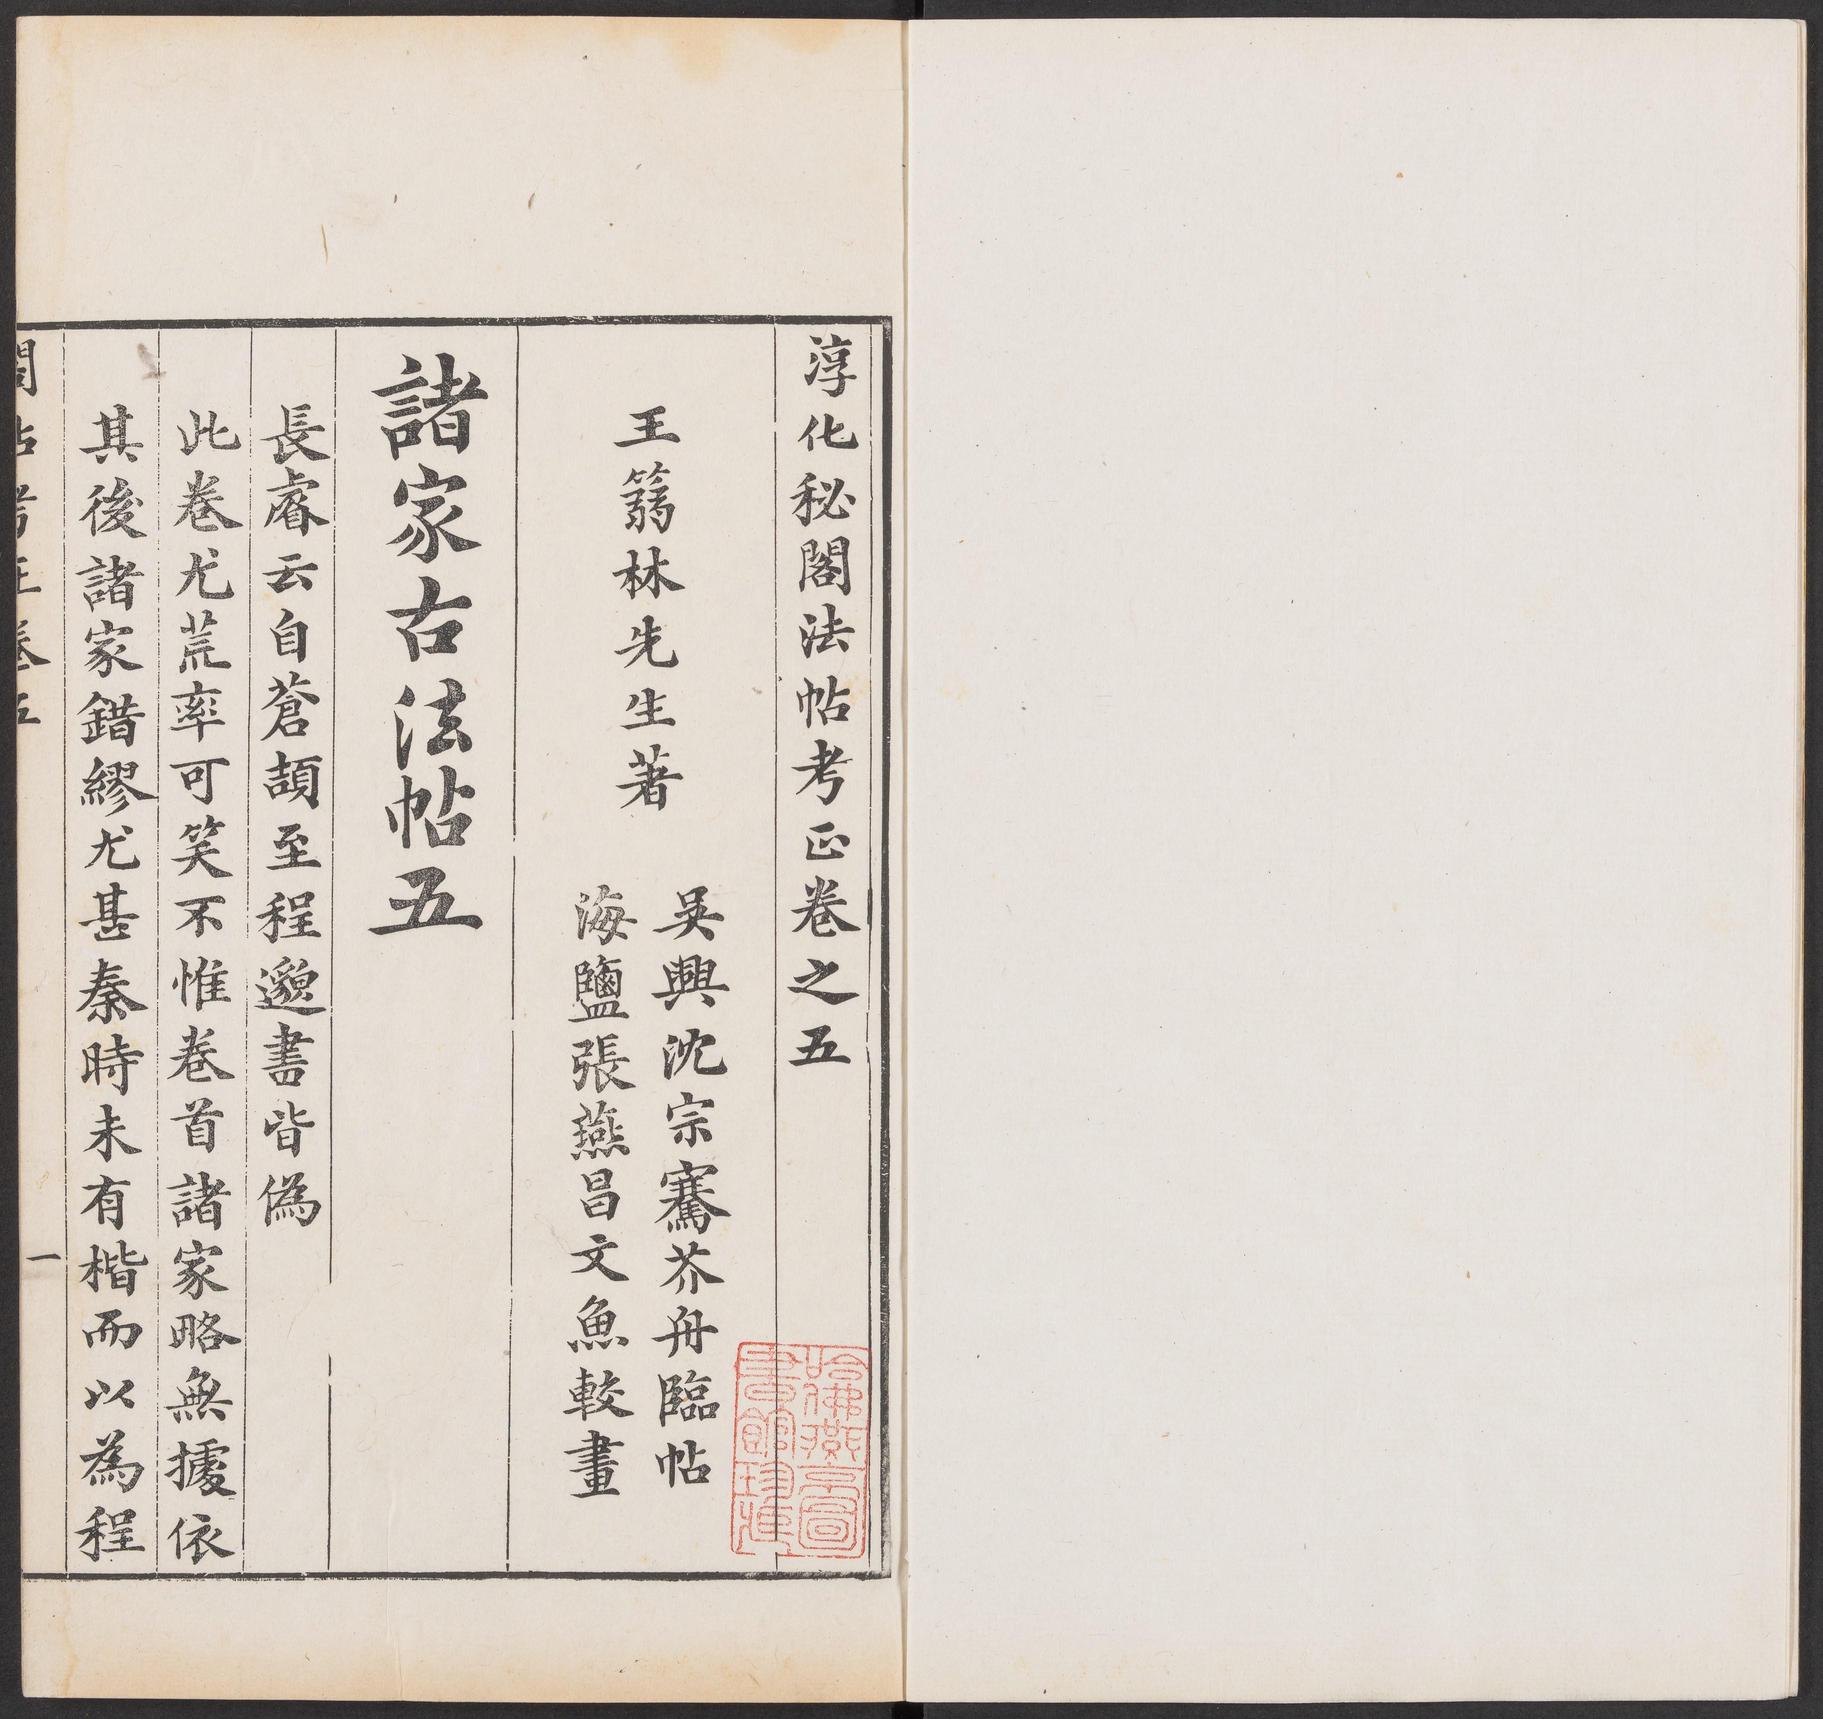 淳化秘閣法帖考正卷之五
王篛林先生著
吳興沈宗騫芥舟臨帖
海鹽張燕昌文魚較畫
諸家古法帖五
長睿云自蒼頡至程邈書皆偽
此卷尤荒率可笑不惟卷首諸家略無據依
其後諸家錯繆尤甚秦時未有楷而以為程
閣帖考正卷五
一
哈佛燕京圖書館珍藏